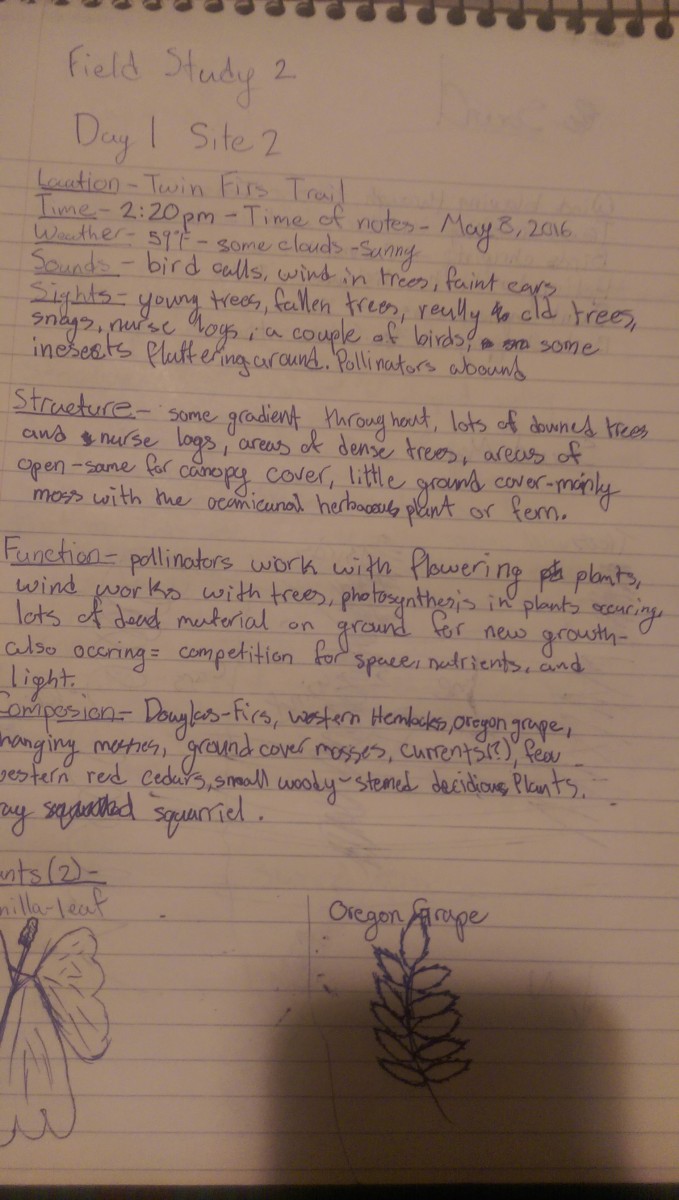 Field Study 2
Day 1 Site 2
Location - Twin Firs Trail
Time - 2:20pm - Time of notes - May 8, 2016
Weather - 59°F - some clouds - Sunny
Sounds - bird calls, wind in trees, faint cars
Sights - young trees, fallen trees, really old trees,
snags, nurse logs, a couple of birds, some
inesects fluttering around. Pollinators abound
Structure - some gradient throughout, lots of downed trees
and nurse logs, areas of dense trees, areas of
open - same for canopy cover, little ground cover - mainly
moss with the herbaceous plant or fern.
Function - pollinators work with flowering plants,
wind works with trees, photosynthesis in plants occuring,
lots of dead material on ground for new growth -
also occring = competition for space, nutrients, and
light.
Composion - Douglas-Firs, western Hemlocks, oregon grape,
hanging mosses, ground cover mosses, currents(?), few
western red cedars, small woody-stemed decidious Plants.
ray squarriel.
nts (2) -
nilla-leaf
Oregon Grape